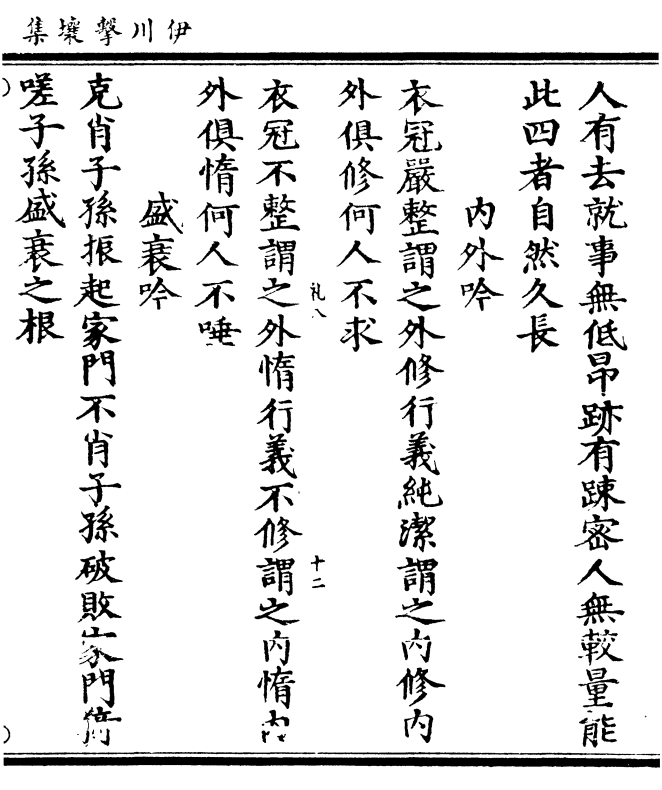 伊川擊壤集
人有去就事無低昂跡有踈密人無較量能
此四者自然久長
內外吟
衣冠嚴整謂之外修行義純潔謂之內修內
外俱修何人不求
礼八
十二
衣冠不整謂之外惰行義不修謂之內惰內
外俱惰何人不唾
盛衰吟
克肖子孫振起家門不肖子孫破敗家門猗
嗟子孫盛衰之根